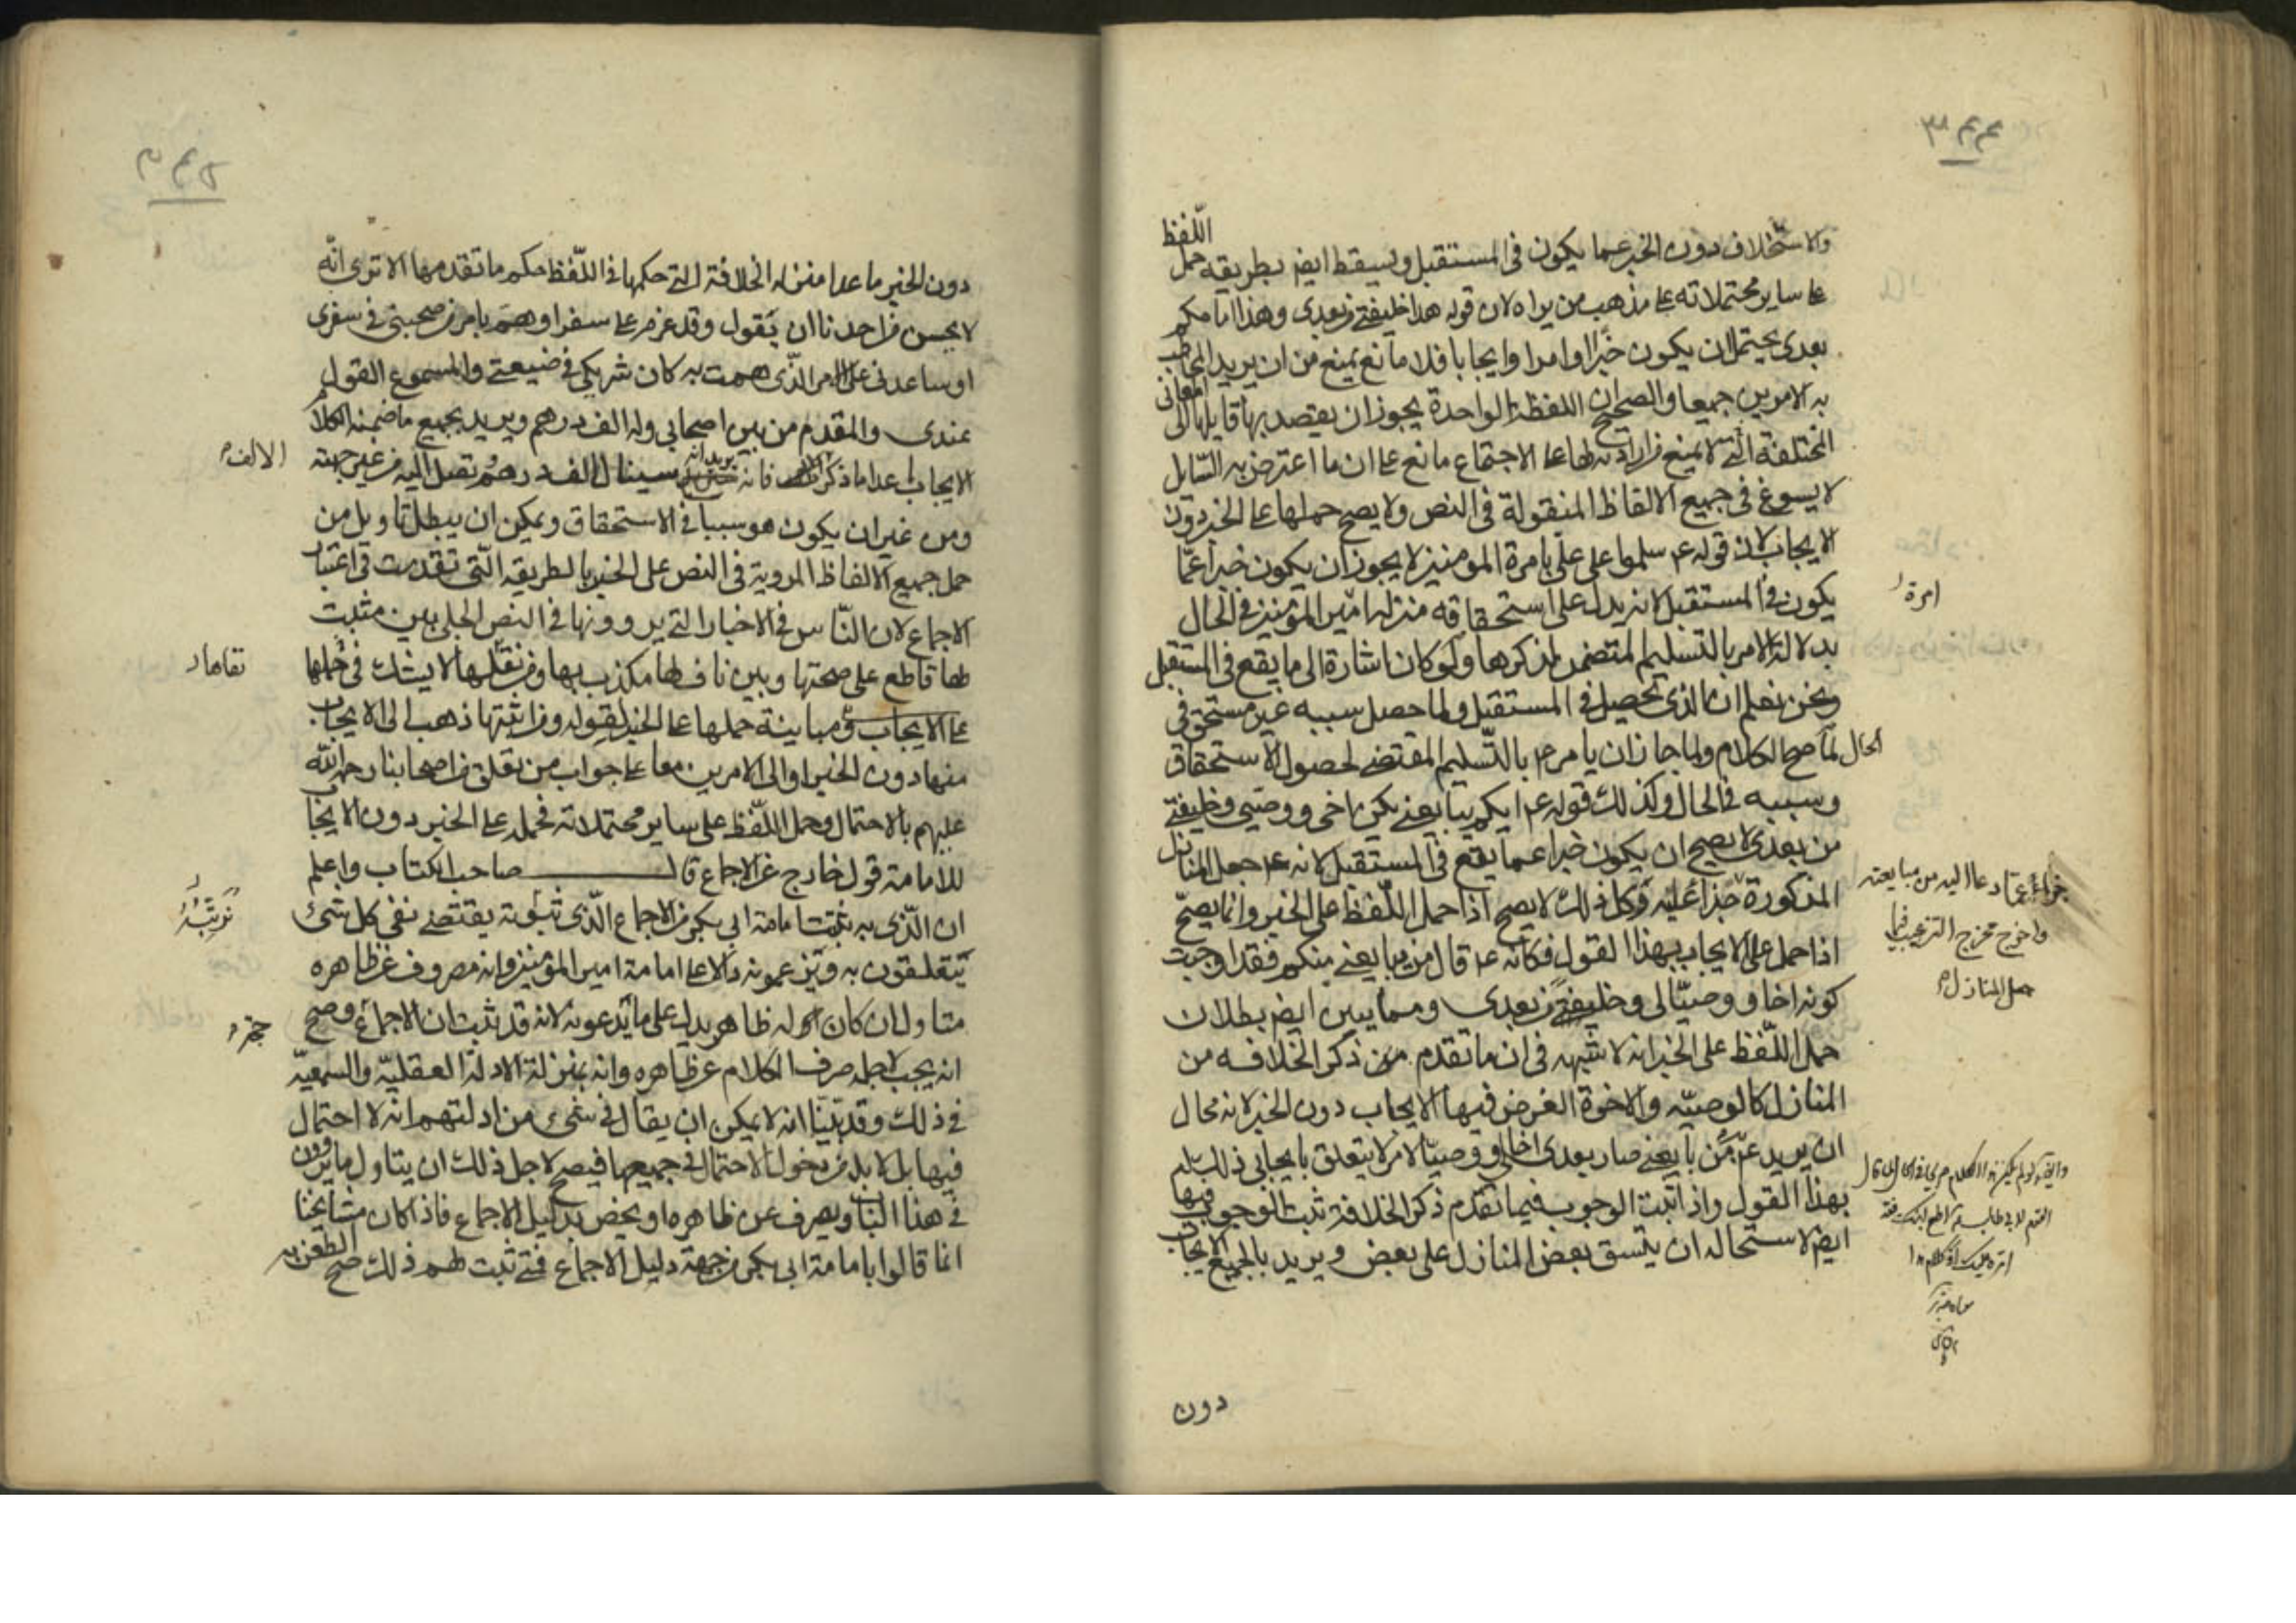 ٣٤٤
والاستخلاف دون الخبر عما يكون في المستقبل ويسقط ايضا بطريقه حمل اللّفظ
على ساير محتملاته على مذهب من يراه لان قوله هذا خليفتي من بعدى وهذا امامكم
بعدى يحتمل ان يكون خبرا وامرا وايجابا فلا مانع يمنع من ان يريد المخاطب
به الامرين جميعا والصحيح ان اللفظة الواحدة يجوز ان يقصد بها قايلها الى المعاني
المختلفة التي لا يمنع من ارادته لها على الاجتماع مانع على ان ما اعترض به السّايل
لا يسوغ في جميع الالفاظ المنقولة في النص ولا يصح حملها على الخبر دون
الايجاب لان قوله ع م سلموا على علي بامرة المومنين لا يجوز ان يكون خبرا عمّا
يكون في المستقبل لانه يدل على استحقاقه منزلة امير المؤمنين في الحال
بدلالة الامر بالتسليم المتضمن لذكرها ولو كان اشارة الى ما يقع في المستقبل
ونحن نعلم ان الذي تحصيل في المستقبل ولما حصل سببه غير مستحق في
الحال لما صح الكلام ولما جاز ان يامر ع م بالتّسليم المقتضى لحصول الاستحقاق
وسببه في الحال وكذلك قوله ع م ايكم يبايعني يكن اخى ووصيي وخليفتي
من بعدى لا يصح ان يكون خبرا عما يقع في المستقبل لانه ع م جعل المنازل
المذكورة جزاء عليه وكل ذلك لا يصح اذا حمل اللّفظ على الخبر وانما يصحّ
اذا حمل على الايجاب بهذا القول فكانه ع م قال من يبايعني منكم فقد اوجبت
كونه اخا ووصيّا لى وخليفتي من بعدى ومما يبين ايضا بطلان
حمل اللّفظ على الخبر انه لا شبهه في ان ما تقدم من ذكر الخلافه من
المنازل كالوصيّه والاخوة الغرض فيها الايجاب دون الخبر لانه محال
ان يريد ع م من بايعني صار بعدى اخا لي ووصيّا لامر لا يتعلق بايجابي ذلك له
بهذا القول واذا ثبت الوجوب فيما تقدم ذكر الخلافة ثبت الوجوب فيها
ايضا لاستحاله ان ينسق بعض المنازل على بعض ويريد بالجميع الايجاب
امرة
واخرج مخرج الترغيب فيما
جعل المنازل
دون
٣٤٥
دون الخبر ما عدا منزله الخلافة التي حكمها في اللّفظ حكم ما تقدمها الا ترى انّه
لا يحسن من احدنا ان يقول وقد عزم على سفر او هم بامر من صحبني في سفرى
او ساعدني على الامر الّذى هممت به كان شريكي في ضيعتي والمسموع القول
عندى والمقدم من بين اصحابي وله الف درهم ويريد بجميع ما ضمنه الكلام
الايجاب عدا ما ذكر فانه يريد انه سينال الف درهم تصل اليه من غير جهته
ومن غير ان يكون هو سببا في الاستحقاق ويمكن ان يبطل تاويل من
حمل جميع الالفاظ المروية في النص على الخبر بالطريقه الّتي تقدمت في اعتبار
الاجماع لان النّاس في الاخبار التي يروونها في النص الجلى بين مثبت
لها قاطع على صحتها وبين ناف لها مكذب بها ومن نقلها لا يشك في حملها
على الايجاب ومباينة حملها على الخبر لقوله ومن اثبتها ذهب الى الايجاب
منها دون الخبر او الى الامرين معا على جواب من نقلق من اصحابنا رحمة اللّه
عليهم بالاحتمال وحمل اللّفظ على ساير محتملاته فحمله على الخبر دون الايجاب
للامامة قول خارج عن الاجماع قال صاحب الكتاب واعلم
ان الّذى به ثبتت امامة ابي بكر من الاجماع الّذى ثبوته يقتضى نفى كل شئ
يتعلقون به ويزعمونه دالا على امامة امير المؤمنين وانه مصروف عن ظاهره
متاول ان كان له ظاهر يدل على ما يّدعونه لانه قد ثبت ان الاجماع وصح
انه يجب لاجله صرف الكلام عن ظاهره وانه بمنزلة الادلة العقليّه والسمعيّه
في ذلك وقد بيّنا انه لا يمكن ان يقال في شئ من ادلتهم انه لا احتمال
فيها بل لا بد من دخول الاحتمال في جميعها فيصح لاجل ذلك ان يتاول ما يروون
في هذا الباب ويصرف عن ظاهره او يخص بدليل الاجماع فاذا كان مشايخنا
انما قالوا بامامة ابى بكر من جهة دليل الاجماع فمتى ثبت لهم ذلك صح الطعن به
الالف
نقلها